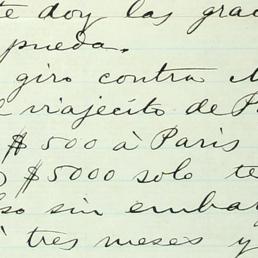 te doy las gra
pueda.
giro contra
l viajecito de P
$500 à Paris
$5000 solo te
so sin embar
à tres meses y